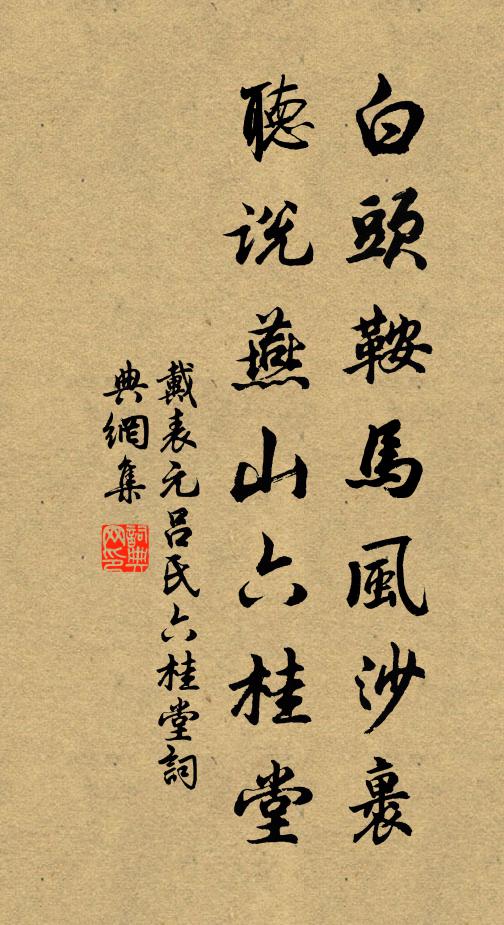 白頭鞍馬風沙裹
聽說燕山六桂堂
戴表元呂氏六桂堂詞
典網集
詞典網印